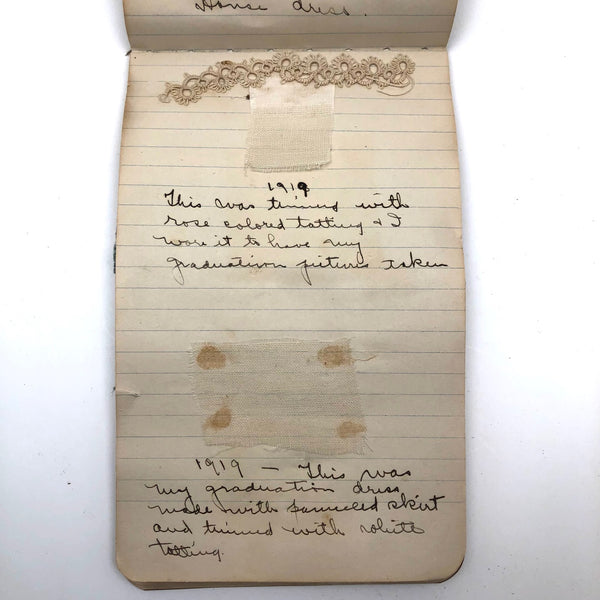 House dress.
1919
This was trimmed with
rose colored tatting & I
wore it to have my
graduation pictures taken
1919 — This was
my graduation dress
made with panneled skirt
and trimmed with white
tatting.